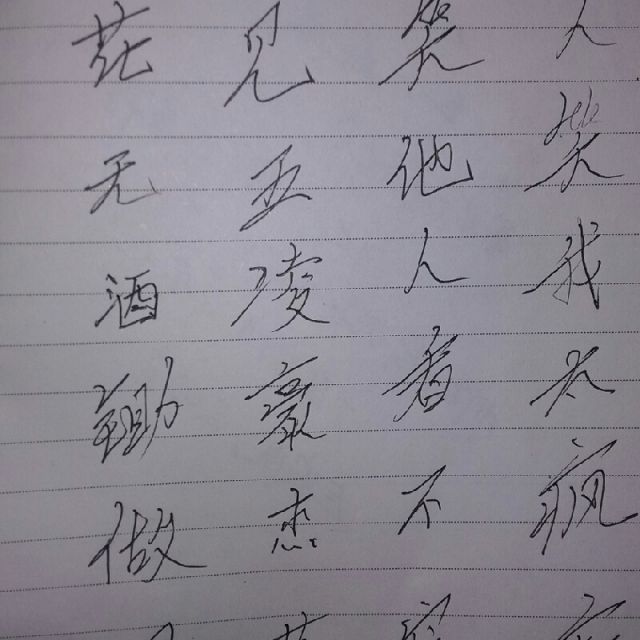 人笑我太疯
笑他人看不穿
见五陵豪杰
花无酒锄做